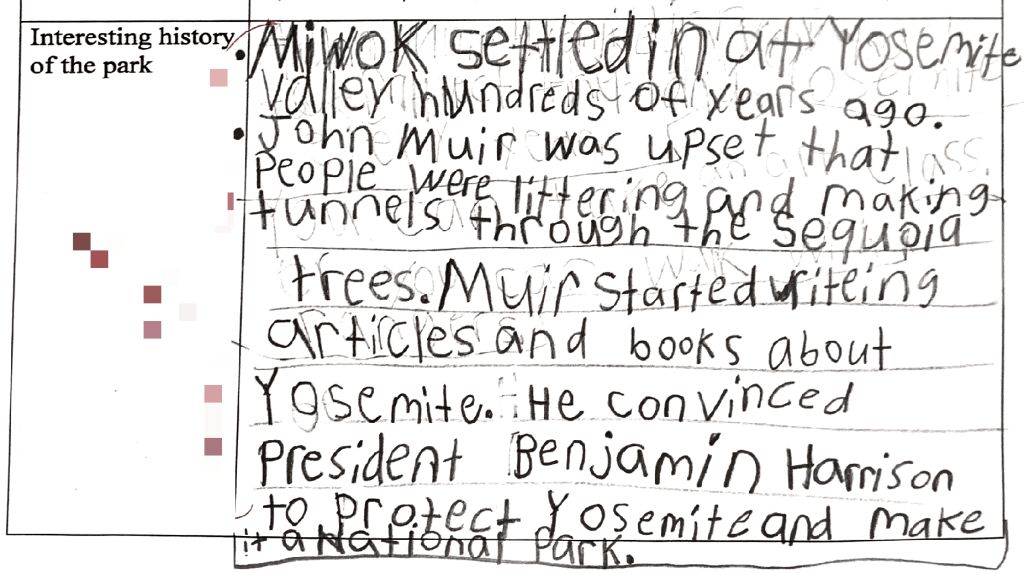 Interesting history
of the park
• Miwok settled in at Yosemite
Valley hundreds of years ago.
• John Muir was upset that
People were littering and making
tunnels through the Sequoia
trees. Muir started writeing
articles and books about
Yosemite. He convinced
President Benjamin Harrison
to Protect Yosemite and make
it a National Park.